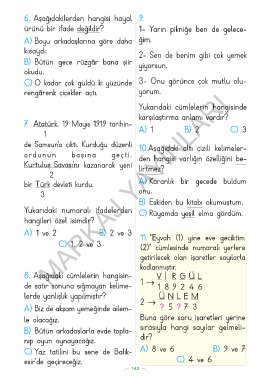 6. Aşağıdakilerden hangisi hayal
ürünü bir ifade değildir?
A) Boyu arkadaşlarına göre daha
kısaydı.
B) Bütün gece rüzgâr bana şiir
okudu.
C) O kadar çok güldü ki yüzünde
rengârenk çiçekler açtı.
7. Atatürk, 19 Mayıs 1919 tarihin-
1
de Samsun'a çıktı. Kurduğu düzenli
ordunun başına geçti.
Kurtuluş Savaşını kazanarak yeni
2
bir Türk devleti kurdu.
3
Yukarıdaki numaralı ifadelerden
hangileri özel isimdir?
A) 1 ve 2
B) 2 ve 3
C) 1, 2 ve 3
8. Aşağıdaki cümlelerin hangisin-
de satır sonuna sığmayan kelime-
lerde yanlışlık yapılmıştır?
A) Biz de akşam yemeğinde ailem-
le olacağız.
B) Bütün arkadaşlarla evde topla-
nıp oyun oynayacağız.
C) Yaz tatilini bu sene de Balık-
esir'de geçireceğiz.
9.
1- Yarın pikniğe ben de gelece-
ğim.
2- Sen de benim gibi çok yemek
yiyorsun.
3- Onu görünce çok mutlu olu-
yorum.
Yukarıdaki cümlelerin hangisinde
karşılaştırma anlamı vardır?
A) 1
B) 2
C) 3
10. Aşağıdaki altı çizili kelimeler-
den hangisi varlığın özelliğini be-
lirtmez?
A) Karanlık bir gecede buldum
onu.
B) Eskiden bu kitabı okumuştum.
C) Rüyamda yeşil elma gördüm.
11. "Eyvah (1) yine eve geciktim
(2)" cümlesinde numaralı yerlere
getirilecek olan işaretler sayılarla
kodlanmıştır.
VİRGÜL
1 → 189246
ÜNLEM
2 → ?5?73
Buna göre soru işaretleri yerine
sırasıyla hangi sayılar gelmeli-
dir?
A) 8 ve 6
B) 9 ve 7
C) 4 ve 6
142
MARKAJ YAYINLARI